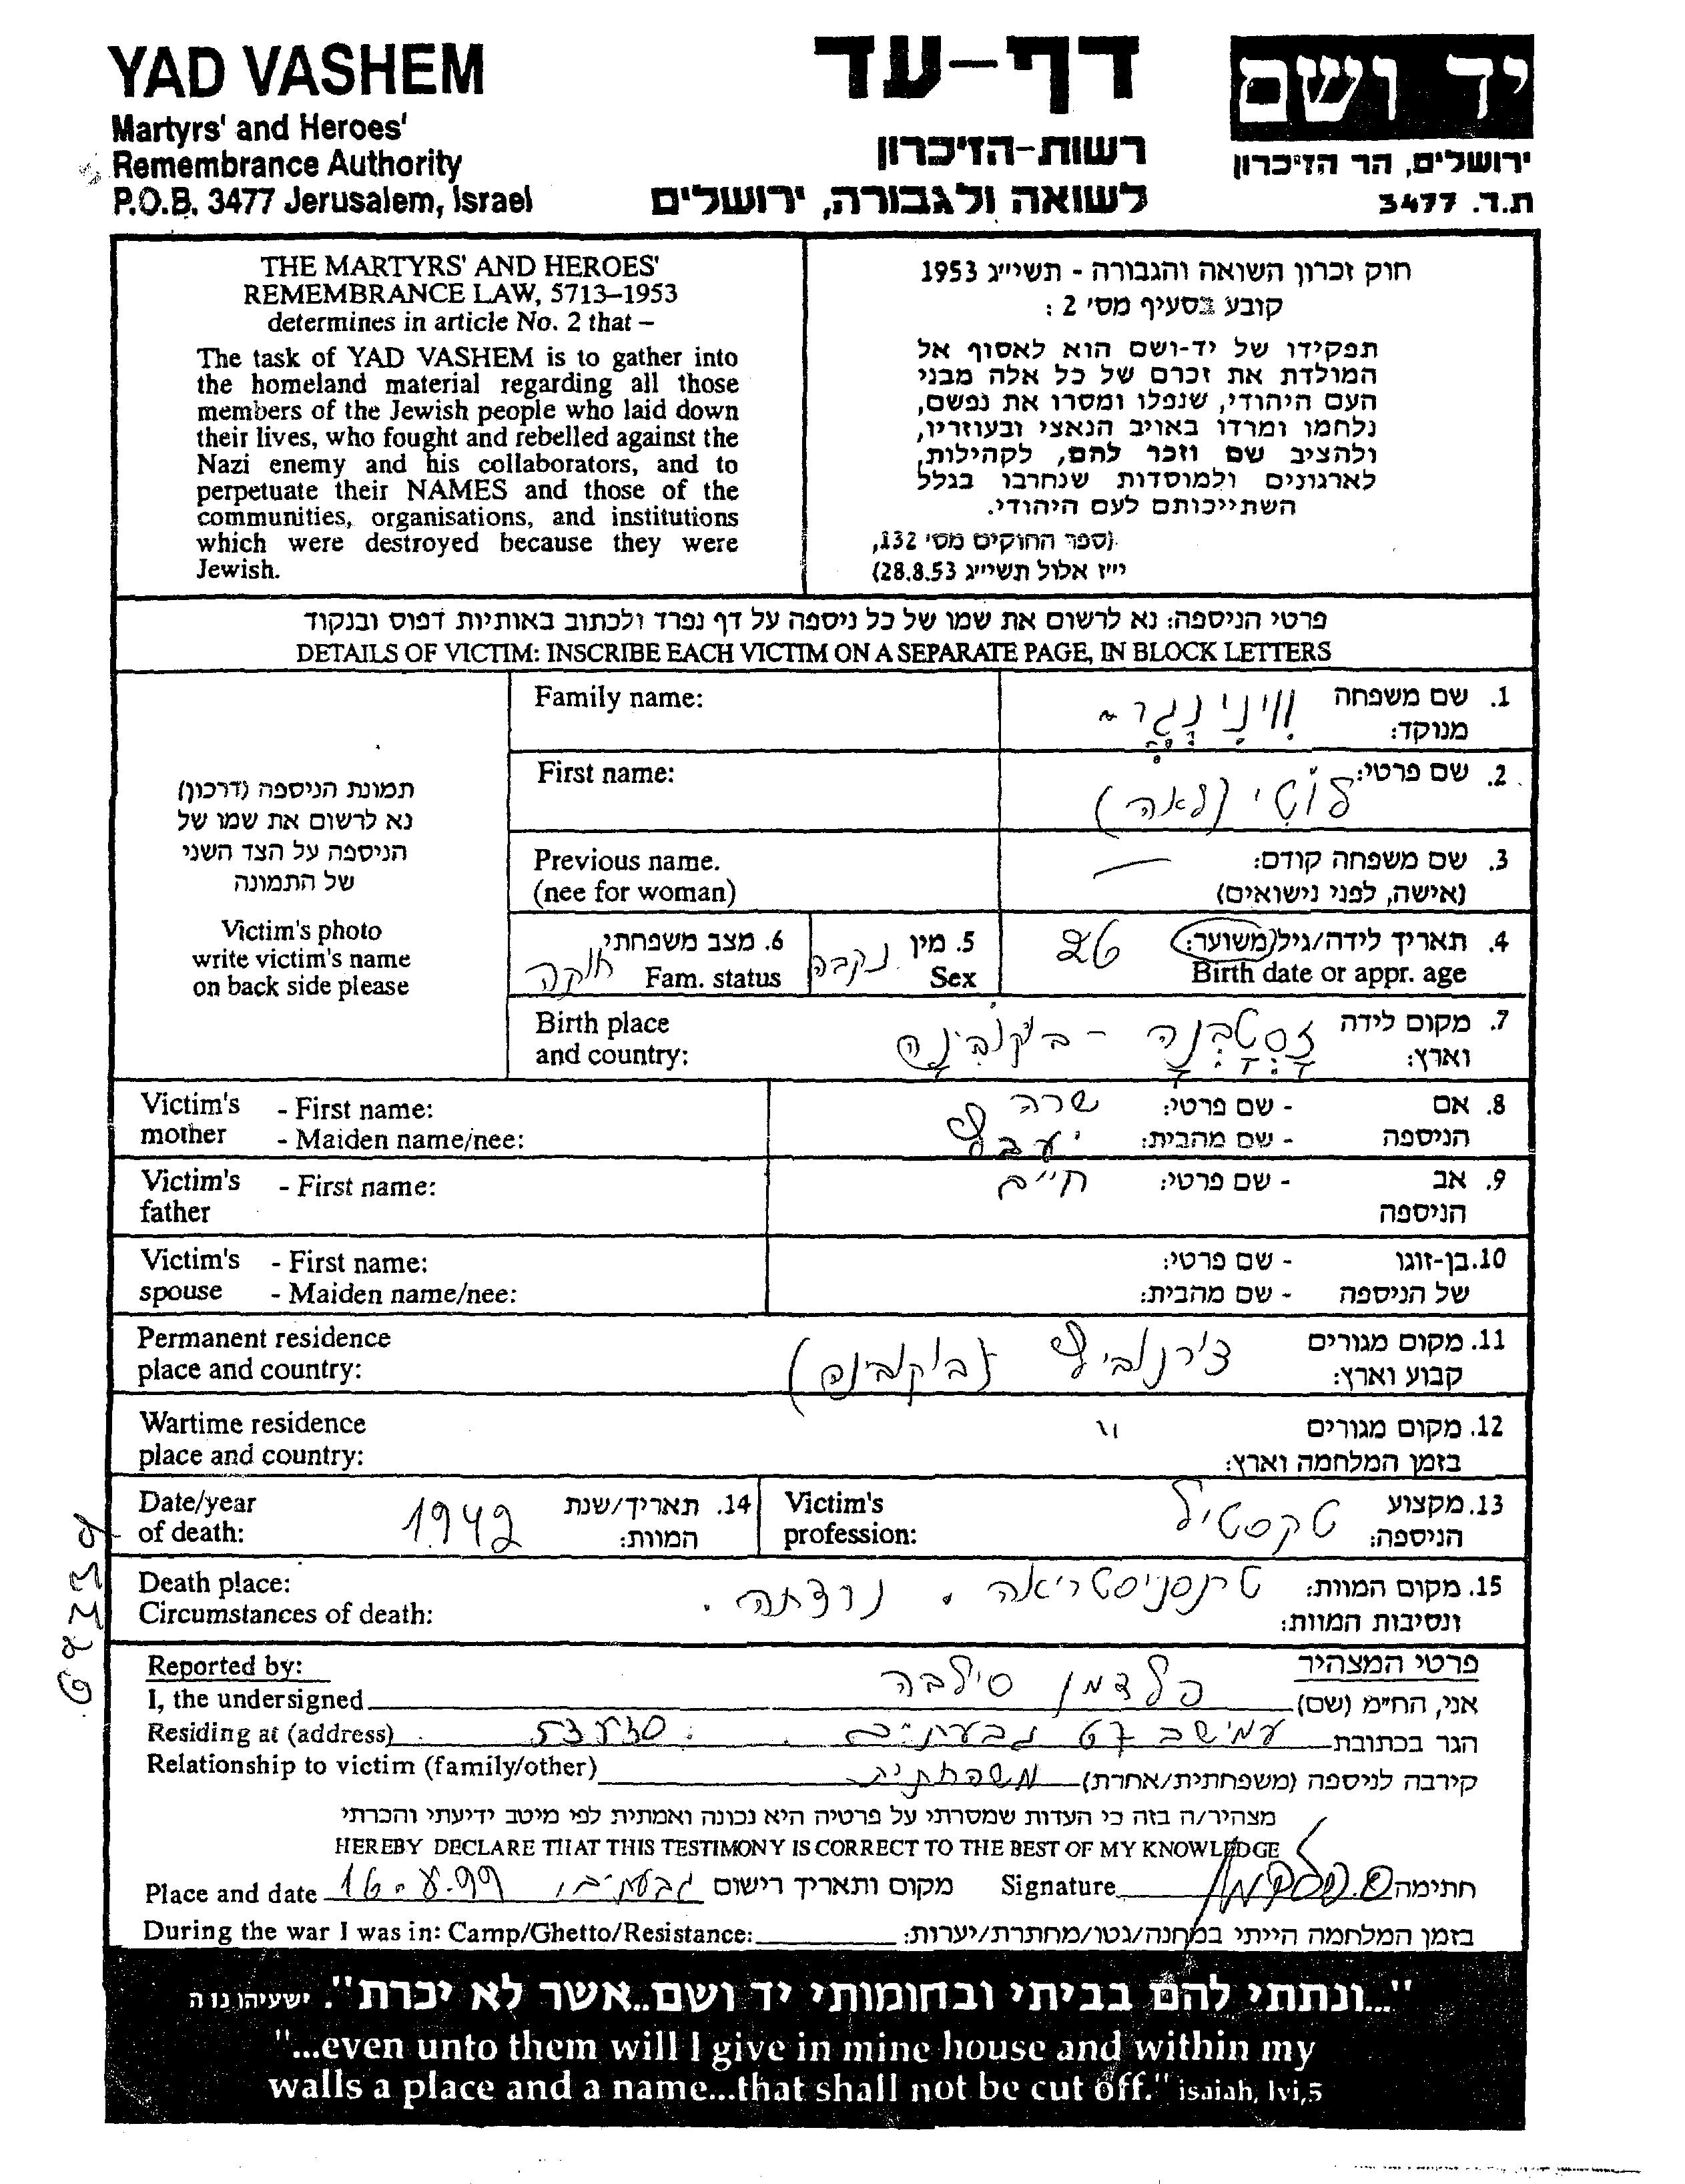 YAD VASHEM
Martyrs' and Heroes'
Remembrance Authority
P.O.B. 3477 Jerusalem, Israel
דף-עד
רשות-הזיכרון
לשואה ולגבורה, ירושלים
יד ושם
ירושלים, הר הזיכרון
ת.ד. 3477
THE MARTYRS' AND HEROES'
REMEMBRANCE LAW, 5713–1953
determines in article No. 2 that –
The task of YAD VASHEM is to gather into
the homeland material regarding all those
members of the Jewish people who laid down
their lives, who fought and rebelled against the
Nazi enemy and his collaborators, and to
perpetuate their NAMES and those of the
communities, organisations, and institutions
which were destroyed because they were
Jewish.
חוק זכרון השואה והגבורה - תשי״ג 1953
קובע בסעיף מס׳ 2 :
תפקידו של יד-ושם הוא לאסוף אל
המולדת את זכרם של כל אלה מבני
העם היהודי, שנפלו ומסרו את נפשם,
נלחמו ומרדו באויב הנאצי ובעוזריו,
ולהציב שם וזכר להם, לקהילות,
לארגונים ולמוסדות שנחרבו בגלל
השתייכותם לעם היהודי.
(ספר החוקים מס׳ 132,
י״ז אלול תשי״ג 28.8.53)
פרטי הניספה: נא לרשום את שמו של כל ניספה על דף נפרד ולכתוב באותיות דפוס ובנקוד
DETAILS OF VICTIM: INSCRIBE EACH VICTIM ON A SEPARATE PAGE, IN BLOCK LETTERS
תמונת הניספה (דרכון)
נא לרשום את שמו של
הניספה על הצד השני
של התמונה
Victim's photo
write victim's name
on back side please
Family name:
1. שם משפחה
מנוקד:
וייניגר
First name:
2. שם פרטי: לוטי (לאה)
Previous name.
(nee for woman)
3. שם משפחה קודם: —
(אישה, לפני נישואים)
4. תאריך לידה/גיל(משוער):
Birth date or appr. age
5. מין נקבה
Sex
6. מצב משפחתי
Fam. status
Birth place
and country:
7. מקום לידה
וארץ:
זסטבנה - בוקובינה
Victim's - First name:
mother - Maiden name/nee:
8. אם - שם פרטי: שרה
הניספה - שם מהבית:
Victim's - First name:
father
9. אב - שם פרטי: חיים
הניספה
Victim's - First name:
spouse - Maiden name/nee:
10. בן-זוגו - שם פרטי:
של הניספה - שם מהבית:
Permanent residence
place and country:
11. מקום מגורים
קבוע וארץ:
צ׳רנוביץ (בוקובינה)
Wartime residence
place and country:
12. מקום מגורים "
בזמן המלחמה וארץ:
Date/year
of death:
14. תאריך/שנת
המוות: 1942
Victim's
profession:
13. מקצוע
הניספה: טקסטיל
Death place:
Circumstances of death:
15. מקום המוות: טרנסניסטריאה. נרצחה.
ונסיבות המוות:
Reported by:
פרטי המצהיר
I, the undersigned
אני, הח״מ (שם) פלדמן סילבה
Residing at (address)
הגר בכתובת עמישב 67 גבעתיים
Relationship to victim (family/other)
קירבה לניספה (משפחתית/אחרת) משפחתית
מצהיר/ה בזה כי העדות שמסרתי על פרטיה היא נכונה ואמתית לפי מיטב ידיעתי והכרתי
HEREBY DECLARE THAT THIS TESTIMONY IS CORRECT TO THE BEST OF MY KNOWLEDGE
Place and date 16.8.99 גבעתיים, מקום ותאריך רישום Signature חתימה
During the war I was in: Camp/Ghetto/Resistance:
בזמן המלחמה הייתי במחנה/גטו/מחתרת/יערות:
"...ונתתי להם בביתי ובחומותי יד ושם..אשר לא יכרת". ישעיהו נו ה
"...even unto them will I give in mine house and within my
walls a place and a name...that shall not be cut off." isaiah, lvi,5